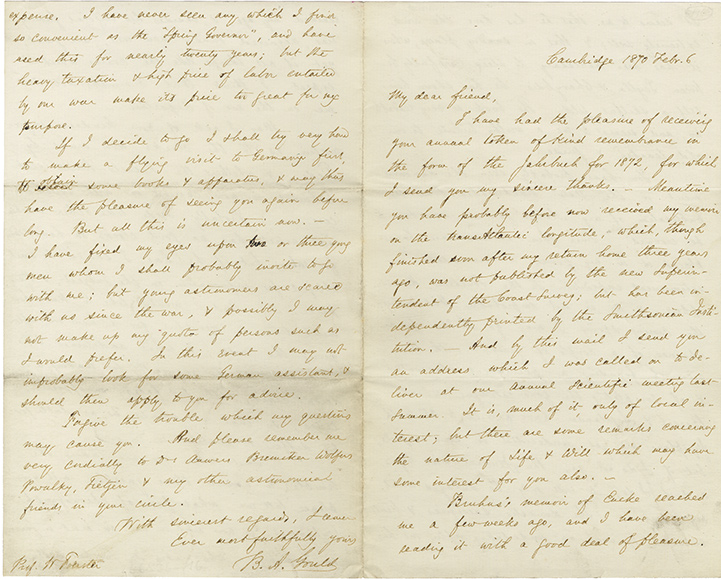 Cambridge 1870 Febr. 6
My dear friend,
I have had the pleasure of receiving
your annual token of kind remembrance in
the form of the Jahrbuch for 1872, for which
I send you my sincere thanks. — Meantime
you have probably before now received my memoir
on the transAtlantic longitude, — which, though
finished soon after my return home three years
ago, was not published by the new Superin-
tendent of the Coast Survey; but has been in-
dependently printed by the Smithsonian Insti-
tution. — And by this mail I send you
an address which I was called on to de-
liver at our annual Scientific meeting last
Summer. It is, much of it, only of local in-
terest; but there are some remarks concerning
the nature of Life & Will which may have
some interest for you also. —
Bruhns's memoir of Encke reached
me a few weeks ago, and I have been
reading it with a good deal of pleasure.
expense. I have never seen any which I find
so convenient as the "Spring Governor", and have
used this for nearly twenty years; but the
heavy taxation & high price of labor entailed
by our war make its price too great for my
purpose.
If I decide to go I shall try very hard
to make a flying visit to Germany first,
to obtain some books & apparatus, & may thus
have the pleasure of seeing you again before
long. But all this is uncertain now. —
I have fixed my eyes upon two or three young
men whom I shall probably invite to go
with me; but young astronomers are scarce
with us since the war, & possibly I may
not make up my quota of persons such as
I would prefer. In this event I may not
improbably look for some German assistant, &
should then apply to you for advice.
Forgive the trouble which my questions
may cause you. And please remember me
very cordially to Drs Auwers Bremiker Wolfers
Powalky, Tietjen & my other astronomical
friends in your circle.
With sincerest regards, I am
Ever most faithfully yours
B. A. Gould
Prof. W. Förster